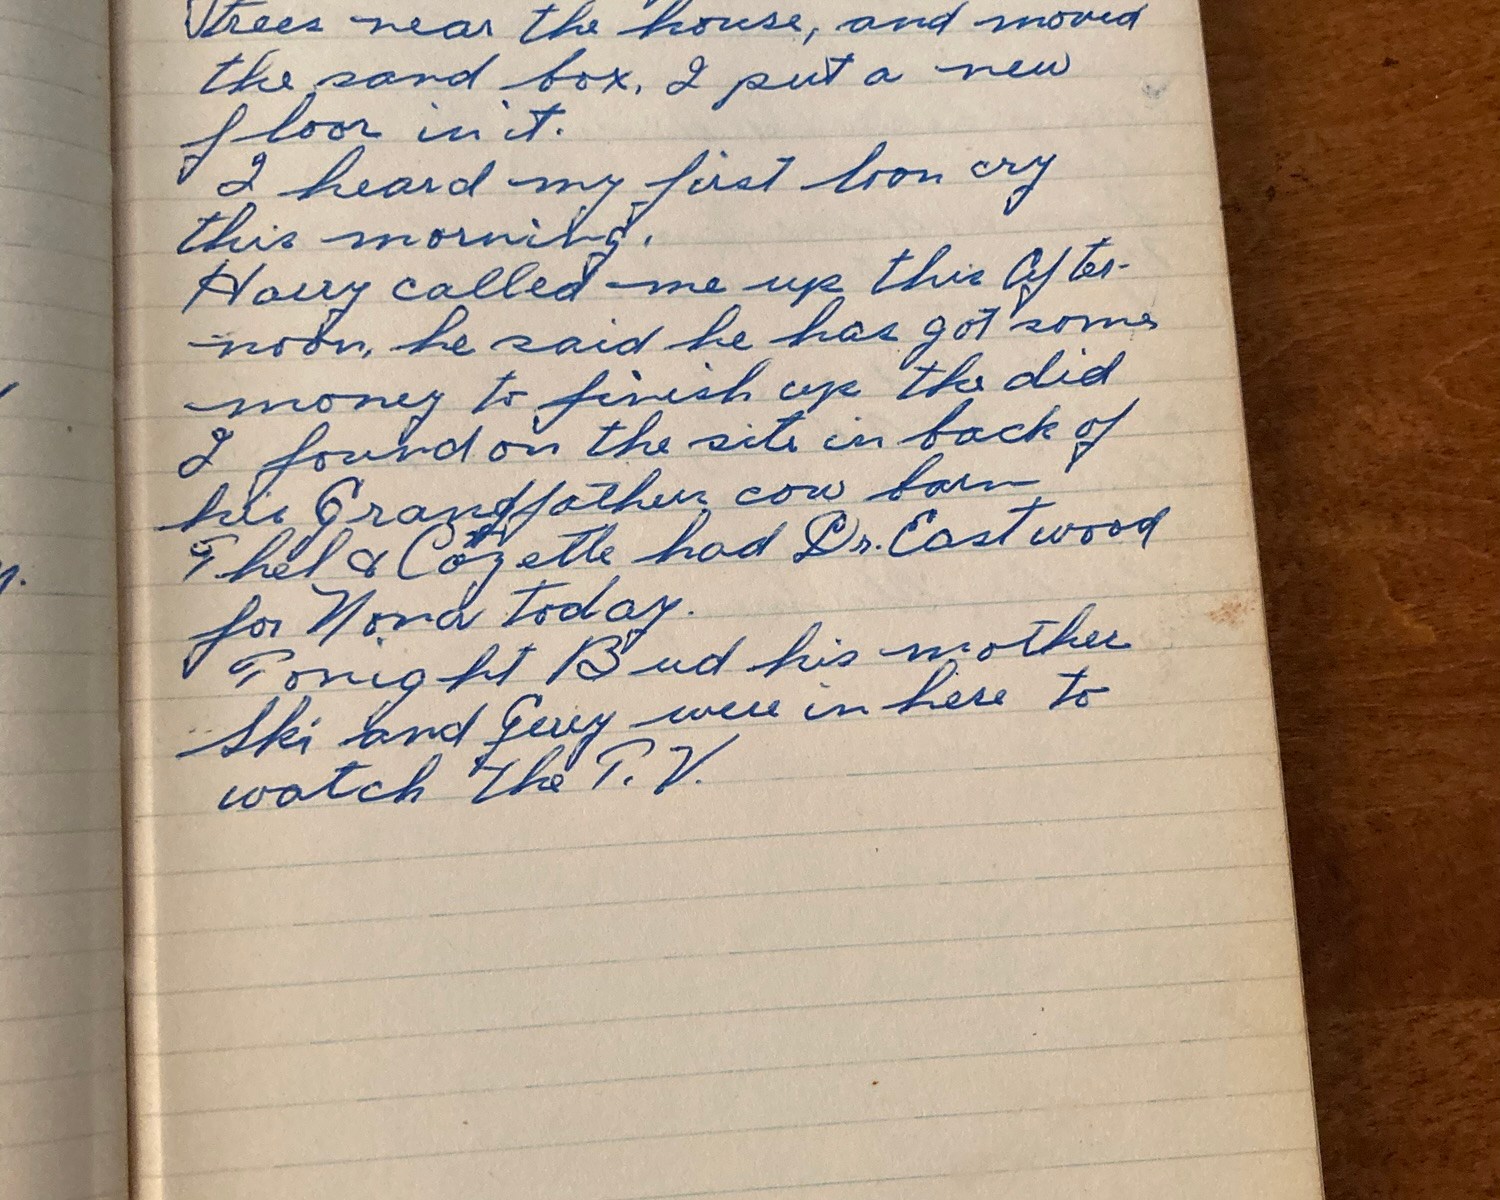 trees near the house, and moved
the sand box. I put a new
floor in it.
I heard my first loon cry
this morning.
Harry called me up this After-
noon, he said he has got some
money to finish up the did
I found on the site in back of
his Grandfathers cow barn
Thel & Cozette had Dr. Eastwood
for Nona today.
Tonight Bud his mother
Ski and Gerry were in here to
watch the T.V.